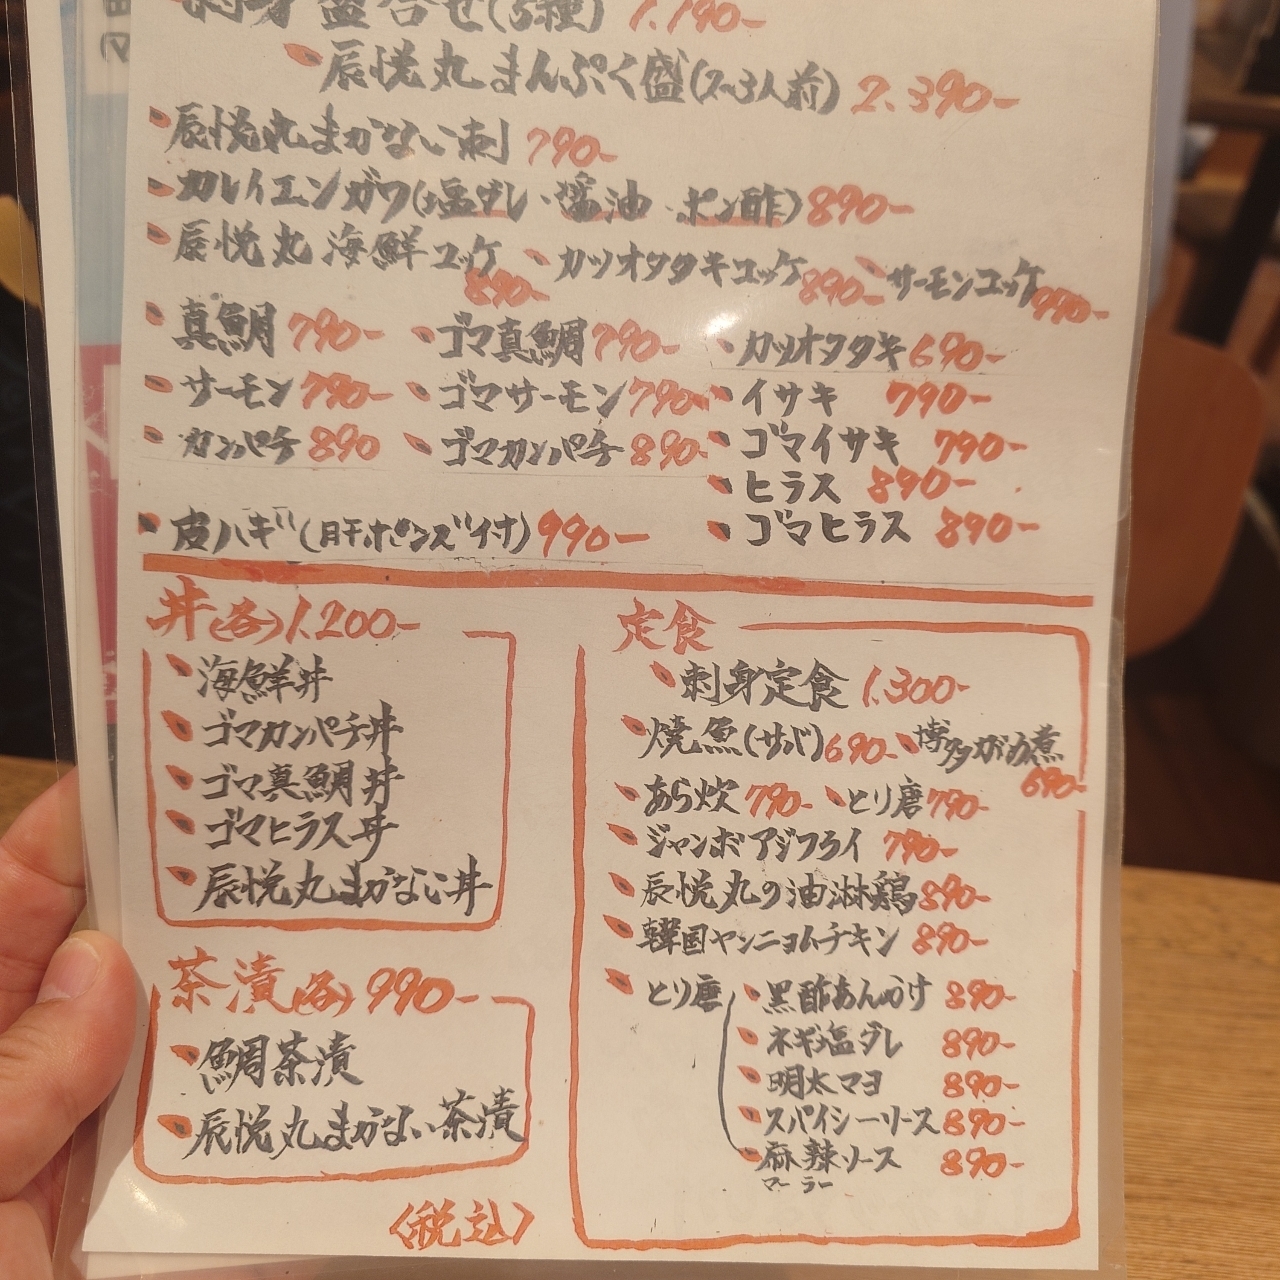 刺身盛合せ(5種) 1.190-
辰悦丸まんぷく盛(2~3人前) 2.390-
辰悦丸まかない刺 790-
カレイエンガワ(塩ダレ・醤油・ポン酢) 890-
辰悦丸海鮮ユッケ 890- カツオタタキユッケ 890- サーモンユッケ 990-
真鯛 790- ゴマ真鯛 790- カツオタタキ 690-
サーモン 790- ゴマサーモン 790- イサキ 790-
カンパチ 890 ゴマカンパチ 890- ゴマイサキ 790-
ヒラス 890-
皮ハギ(肝ポンズ付) 990- ゴマヒラス 890-
丼(各) 1.200-
海鮮丼
ゴマカンパチ丼
ゴマ真鯛丼
ゴマヒラス丼
辰悦丸まかない丼
茶漬(各) 990-
鯛茶漬
辰悦丸まかない茶漬
〈税込〉
定食
刺身定食 1.300-
焼魚(サバ) 690- 博多がめ煮 690-
あら炊 790- とり唐 790-
ジャンボアジフライ 790-
辰悦丸の油淋鶏 890-
韓国ヤンニョムチキン 890-
とり唐 黒酢あんかけ 890-
ネギ塩ダレ 890-
明太マヨ 890-
スパイシーソース 890-
麻辣ソース 890-
マーラー